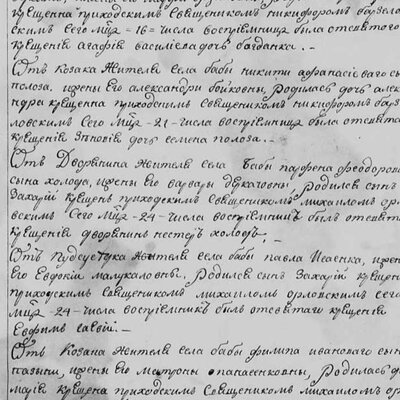 крещенна приходскимъ Священникомъ никифоромъ
скимъ Сего Мця -16- числа воспріемница была отъ святаго
крещенія агафія василіева дочь
Отъ Козака Жителя села бабы никити афанасіева сы
полоза, жены Его александри Родилась дочь алек
ндра крещенна приходскимъ Священникомъ никифоромъ
ловскимъ Сего Мця -21- числа воспріемница была отъ свята
крещенія Зѣновія дочь семена полоза.
Отъ Дворянина Жителя села бабы парфена феодоров
сына холода, жены Его варвары Родился сынъ
Захарій крещенъ приходскимъ Священникомъ михаиломъ орло
вскимъ Сего Мця -24- числа воспріемникъ былъ отъ свята
крещенія дворянинъ нестеръ холодъ.
Отъ Жителя села бабы павла исаенка, жен
Его Евфокіи Родился сынъ Захарій крещенъ
приходскимъ Священникомъ михаиломъ орловскимъ сего
Мця -24- числа воспріемникъ былъ отъ святаго крещенія
Евфимъ
Отъ Козака Жителя села бабы филипа иванова сын
жены Его матроны Родилась д
марія крещена приходскимъ Священникомъ михаиломъ ор